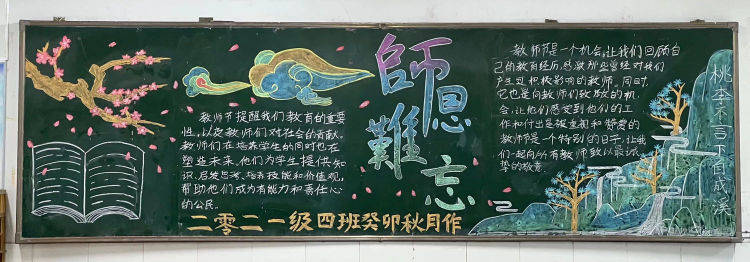 教师节提醒我们教育的重要
性,以及教师们对社会的贡献。
教师们在培养学生的同时也在
塑造未来,他们为学生提供知
识,启发思考,培养技能和价值观,
帮助他们成为有能力和责任心
的公民。
二零二一级四班癸卯秋月作
師恩難忘
教师节是一个机会,让我们回顾自
己的教育经历,感激那些曾经对我们
产生过积极影响的教师。同时,
它也是向教师们致敬的机
会,让他们感受到他们的工
作和付出是被重视和赞赏的
教师节是一个特别的日子,让我
们一起向所有教师致以最诚
挚的敬意。
桃李不言下自成溪